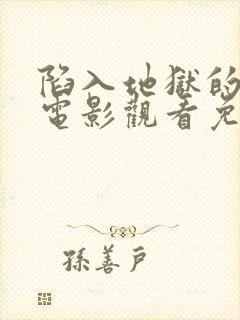 陷入地獄的
電影觀看免
孫善戶